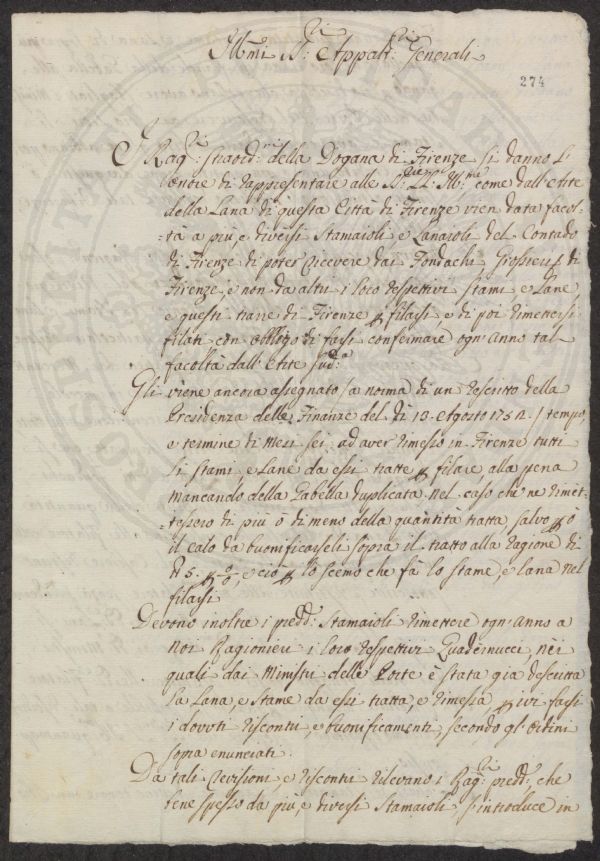 Ill:mi S:ri Appalt:ri Generali
274
I Rag:ri straord:ri della Dogana di Firenze si danno l'
onore di rappresentare alle SS:rie LL: Ill:me come dall'Arte
della Lana di questa Città di Firenze vien data facol-
-tà a più, e diversi Stamaioli, e Lanaioli del Contado
di Firenze di poter ricevere dai Fondachi Grossieri di
Firenze, e non da altri i loro respettivi stami, e Lane
e questi trarre di Firenze p filarsi, e di poi rimettersi
filati con obbligo di farsi confermare ogn'anno tal
facoltà dall'Arte sud:a
Gli viene ancora assegnato (a norma di un rescritto della
Presidenza delle Finanze del dì 13. Agosto 1752.) tempo,
e termine di Mesi sei ad aver rimesso in Firenze tutti
li stami, e Lane da essi tratte p filare, alla pena
mancando della Gabella duplicata nel caso che ne rimet-
-tessero di più ò di meno della quantità tratta, salvo p ò
il calo da buonificarseli sopra il tratto alla ragione di
5. p %, e ciò p lo scemo che fà lo stame, e lana nel
filarsi
Devono inoltre i predd:i Stamaioli rimettere ogn'anno a
noi Ragionieri i loro respettivi Quadernucci, nei
quali dai Ministri delle Porte è stata già descritta
la Lana, e stame da essi tratta, e rimessa p ivi farsi
i dovuti riscontri, e buonificamenti, secondo gl'ordini
sopra enunciati.
Da tali revisioni, e riscontri rilevano i Rag:ri predd:i che
bene spesso da più, e diversi Stamaioli s'introduce in